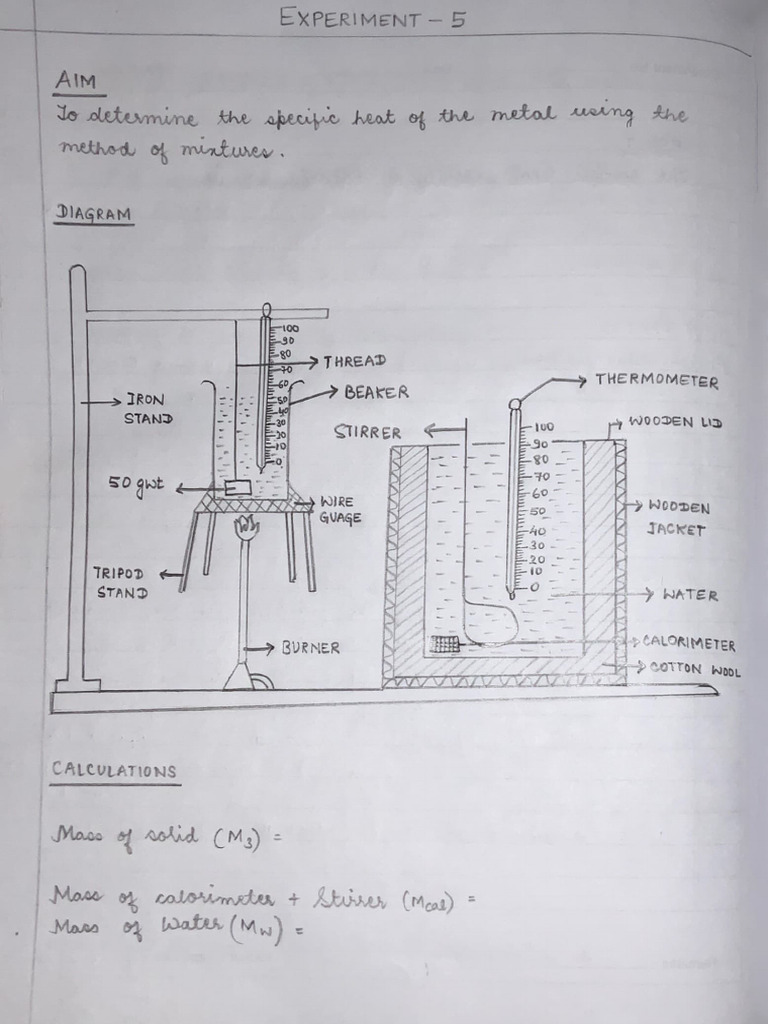 EXPERIMENT - 5
AIM
To determine the specific heat of the metal using the
method of mixtures.
DIAGRAM
100
90
80
70
60
50
40
30
20
10
0
THREAD
BEAKER
IRON
STAND
50 gwt
WIRE
GUAGE
TRIPOD
STAND
BURNER
THERMOMETER
STIRRER
WOODEN LID
100
90
80
70
60
50
40
30
20
10
0
WOODEN
JACKET
WATER
CALORIMETER
COTTON WOOL
CALCULATIONS
Mass of solid (M3) =
Mass of calorimeter + Stirrer (Mcal) =
Mass of Water (Mw) =